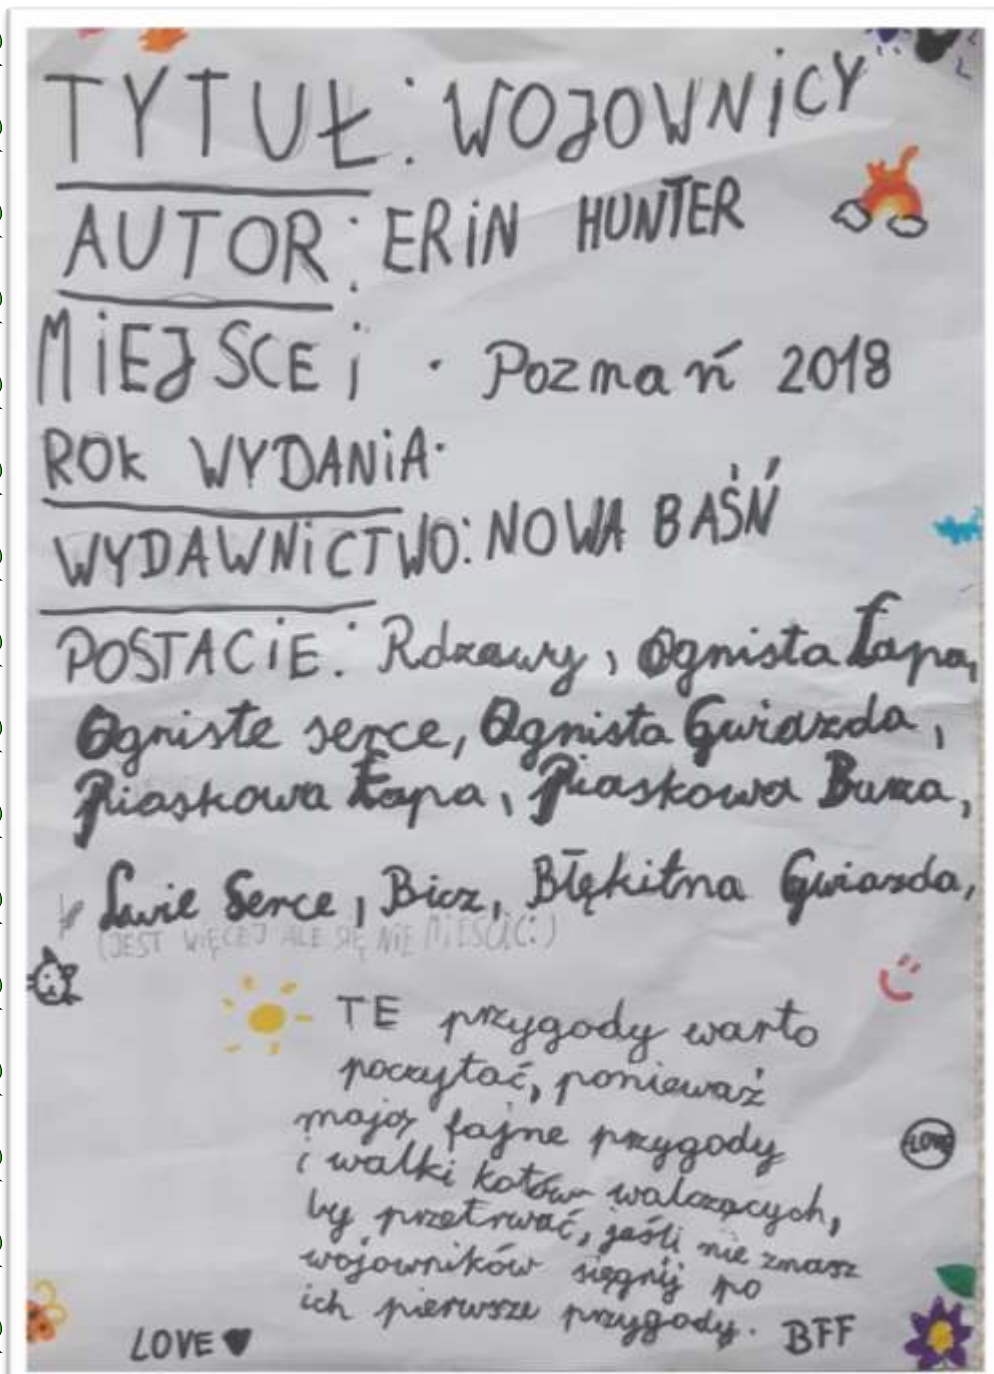 TYTUŁ: WOJOWNICY
AUTOR: ERIN HUNTER
MIEJSCE i · Poznań 2018
ROK WYDANIA·
WYDAWNICTWO: NOWA BAŚŃ
POSTACIE: Rdzawy, Ognista Łapa,
Ogniste serce, Ognista Gwiazda,
Piaskowa Łapa, Piaskowa Burza,
Lwie Serce, Bicz, Błękitna Gwiazda,
(JEST WIĘCEJ ALE SIĘ NIE MIEŚCIĆ:)
TE przygody warto
poczytać, ponieważ
mają fajne przygody
i walki kotów walczących,
by przetrwać, jeśli nie znasz
wojowników sięgnij po
ich pierwsze przygody. BFF
LOVE
LOVE ♥